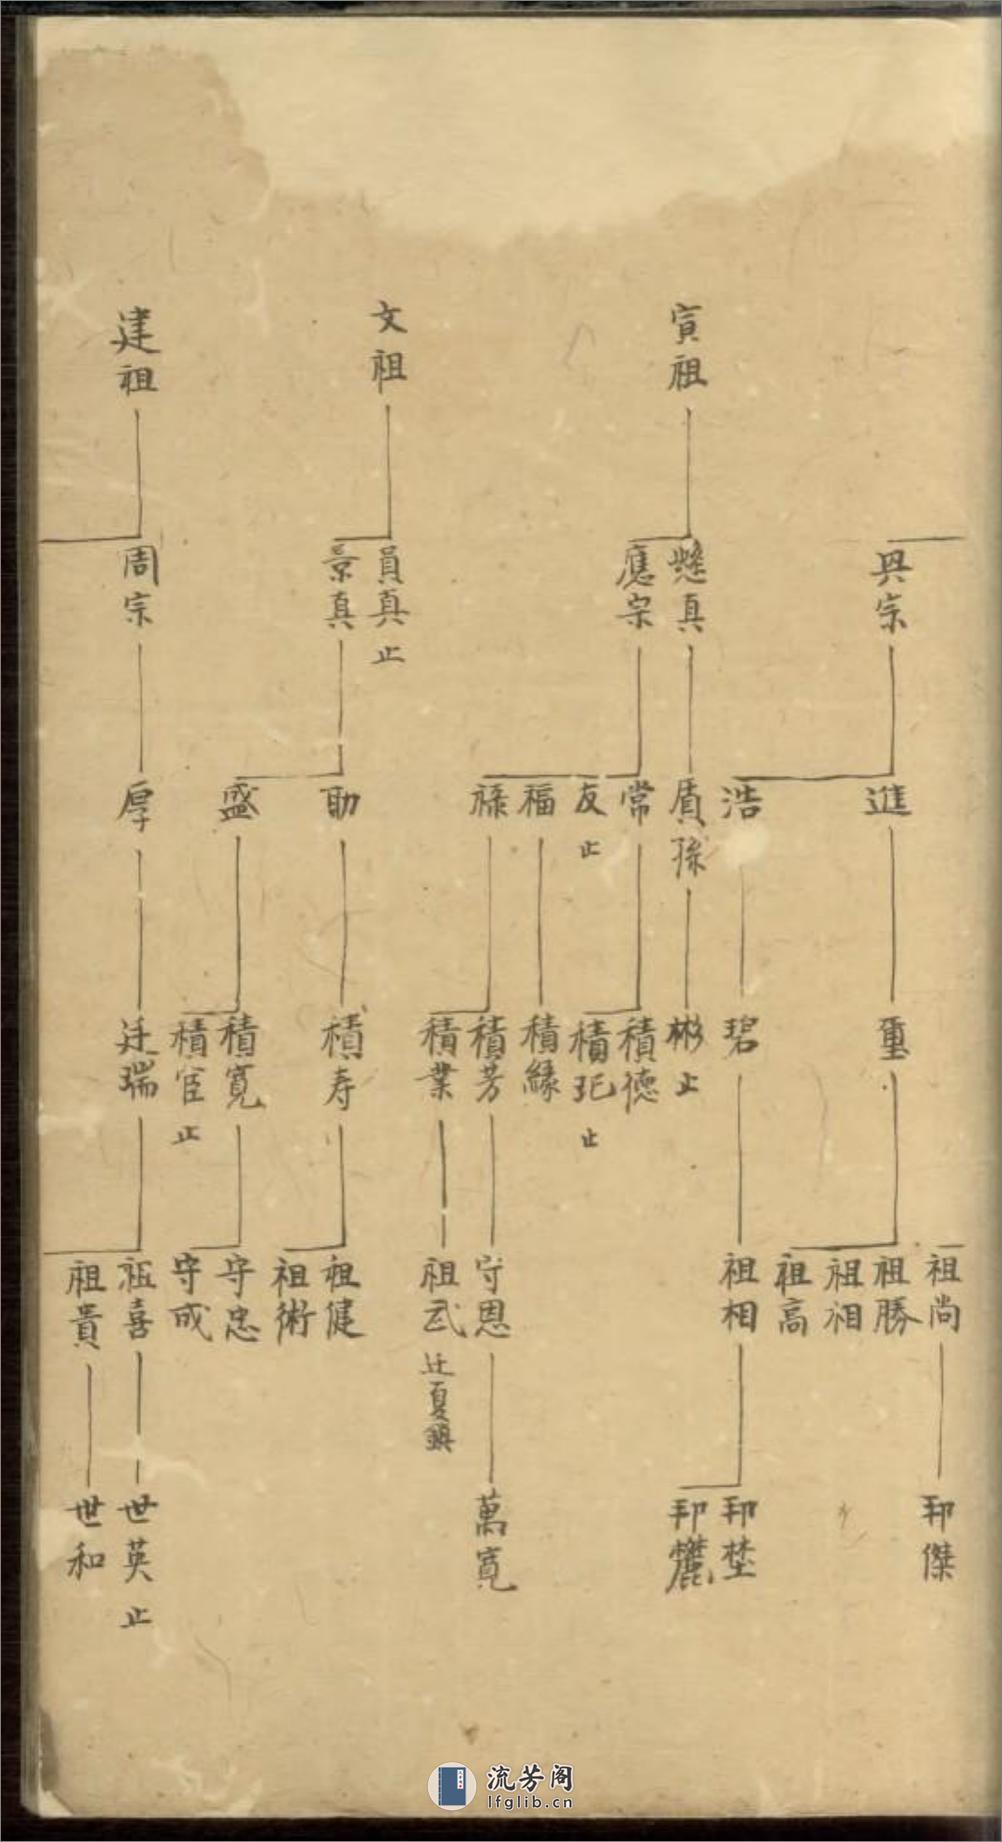 寅祖
文祖
建祖
興宗
懸真
應宗
員真 止
景真
周宗
進
浩
盾孫
常
友 止
福
祿
助
盛
厚
璽
碧
彬 止
積德
積玘 止
積緣
積芳
積業
積寿
積寬
積宦 止
廷瑞
祖尚
祖勝
祖相
祖高
祖相
守恩
祖武 迁夏鎮
祖健
祖術
守忠
守成
祖喜
祖貴
邦傑
邦埜
萬寬
世英 止
世和
流芳阁
lfglib.cn